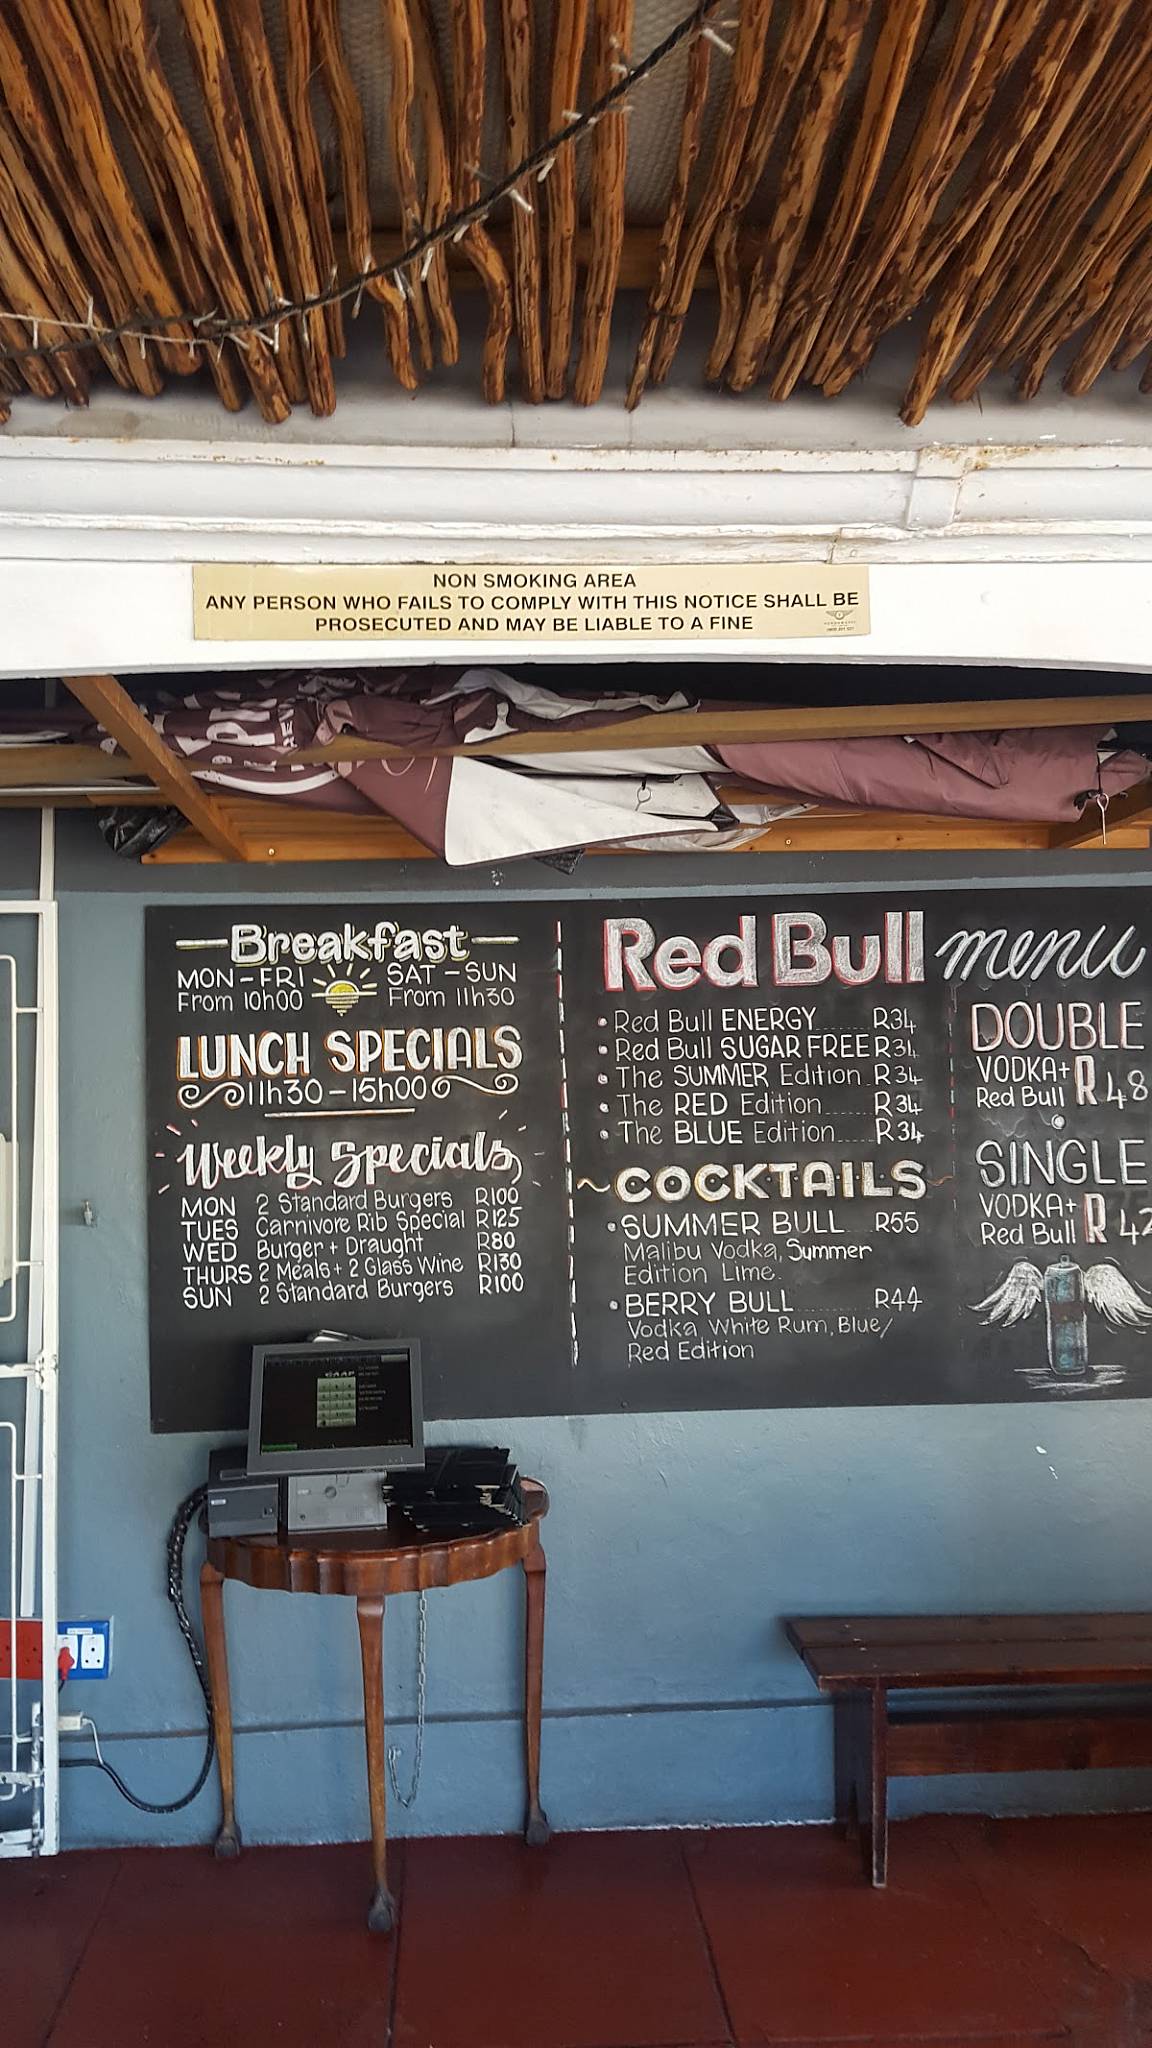 NON SMOKING AREA
ANY PERSON WHO FAILS TO COMPLY WITH THIS NOTICE SHALL BE
PROSECUTED AND MAY BE LIABLE TO A FINE
Breakfast
MON-FRI SAT-SUN
From 10h00 From 11h30
LUNCH SPECIALS
11h30-15h00
Weekly Specials
MON 2 Standard Burgers R100
TUES Carnivore Rib Special R125
WED Burger + Draught R80
THURS 2 Meals + 2 Glass Wine R130
SUN 2 Standard Burgers R100
Red Bull menu
Red Bull ENERGY R34
Red Bull SUGAR FREE R34
The SUMMER Edition R34
The RED Edition R34
The BLUE Edition R34
COCKTAILS
SUMMER BULL R55
Malibu Vodka, Summer
Edition Lime.
BERRY BULL R44
Vodka, White Rum, Blue/
Red Edition
DOUBLE
VODKA+
Red Bull R48
SINGLE
VODKA+
Red Bull R42
GAAP